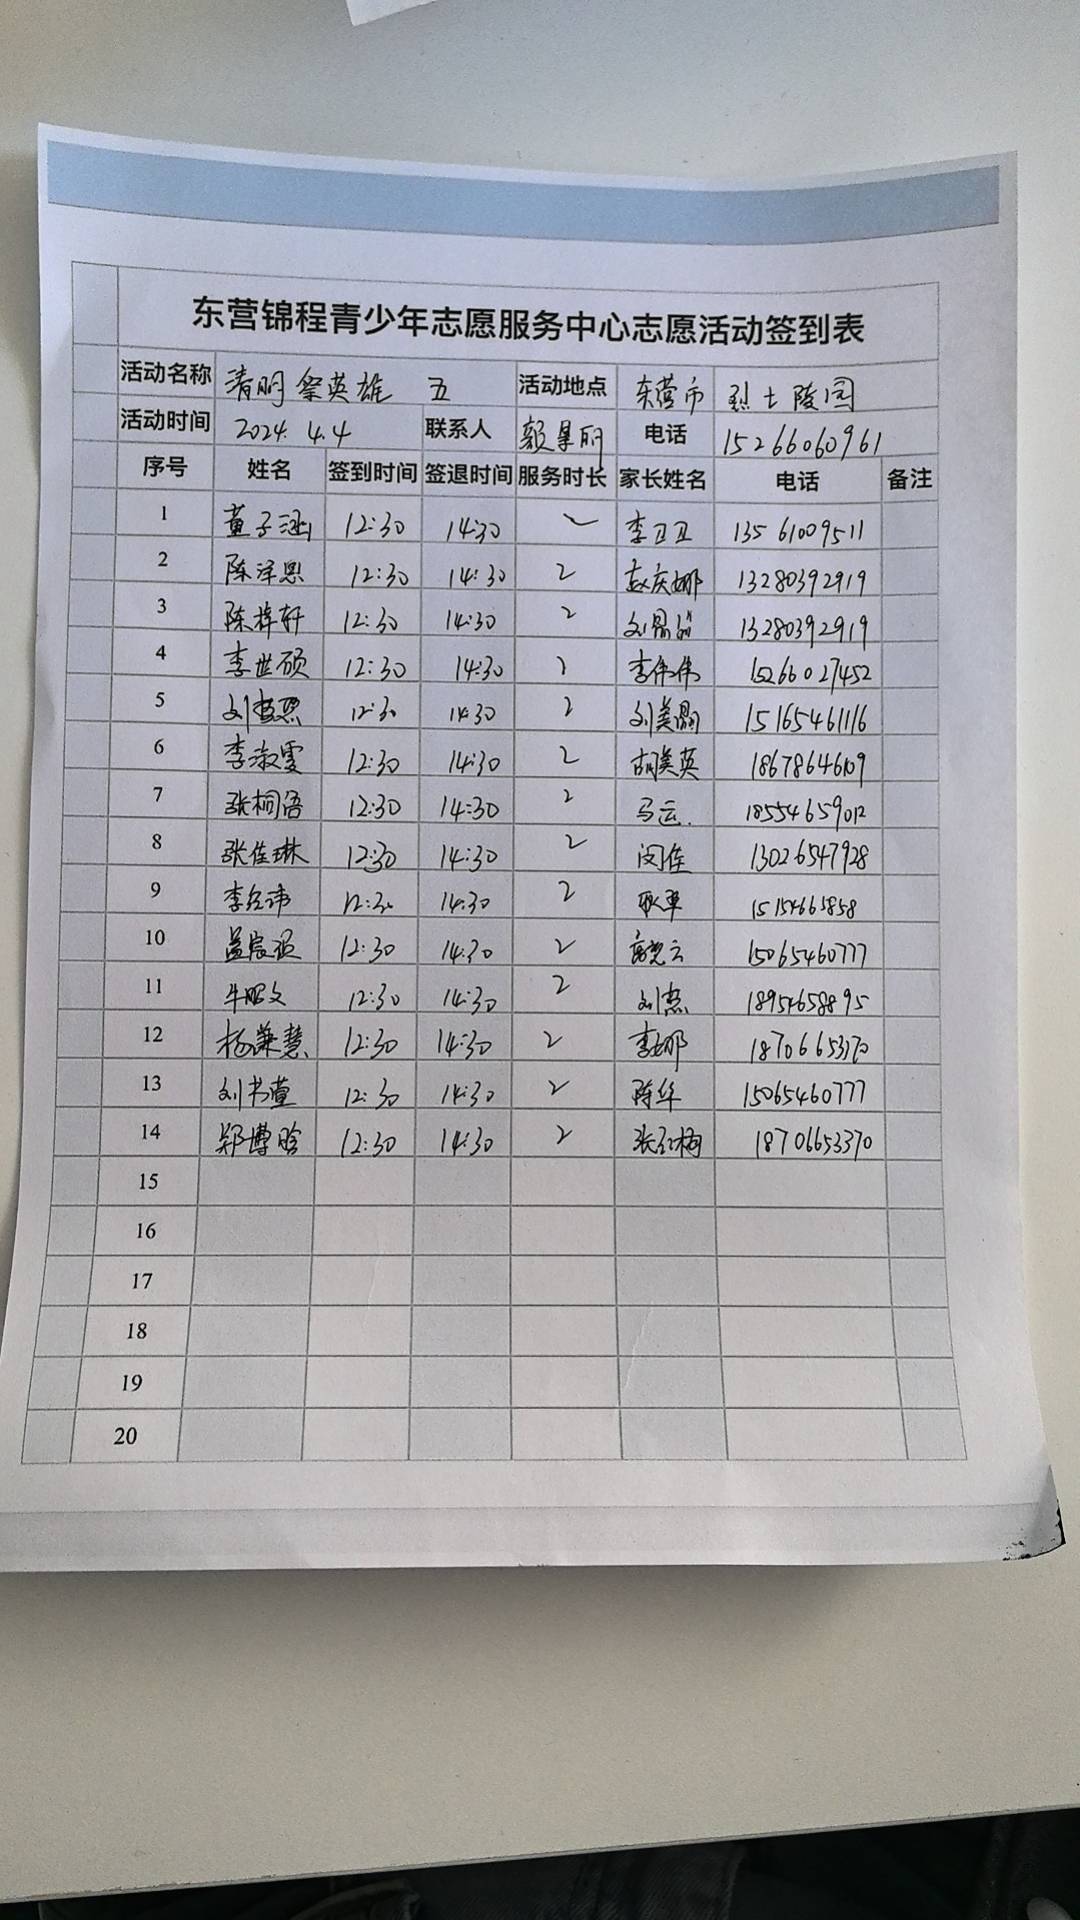 东营锦程青少年志愿服务中心志愿活动签到表
活动名称 清明祭英雄 五 活动地点 东营市 烈士陵园
活动时间 2024. 4.4 联系人 丽 电话 15266060961
序号 姓名 签到时间 签退时间 服务时长 家长姓名 电话 备注
1 董子涵 12:30 14:30 2 李卫卫 13561009511
2 陈泽恩 12:30 14:30 2 赵庆娜 13280392919
3 陈梓轩 12:30 14:30 2 13280392919
4 李世硕 12:30 14:30 李伟伟 15266027452
5 12:30 14:30 2 15165461116
6 李淑雯 12:30 14:30 2 胡美英 18678646109
7 张桐语 12:30 14:30 2 马云. 18554659012
8 张佳琳 12:30 14:30 2 闵佳 13026547928
9 12:30 14:30 2 耿平
10 12:30 14:30 2 15065460777
11 牛熙文 12:30 14:30 2 18954658895
12 杨谦慧 12:30 14:30 2 李娜 18706653370
13 刘书萱 12:30 14:30 2 陈华 15065460777
14 郑博晗 12:30 14:30 2 张红梅 18706653370
15
16
17
18
19
20